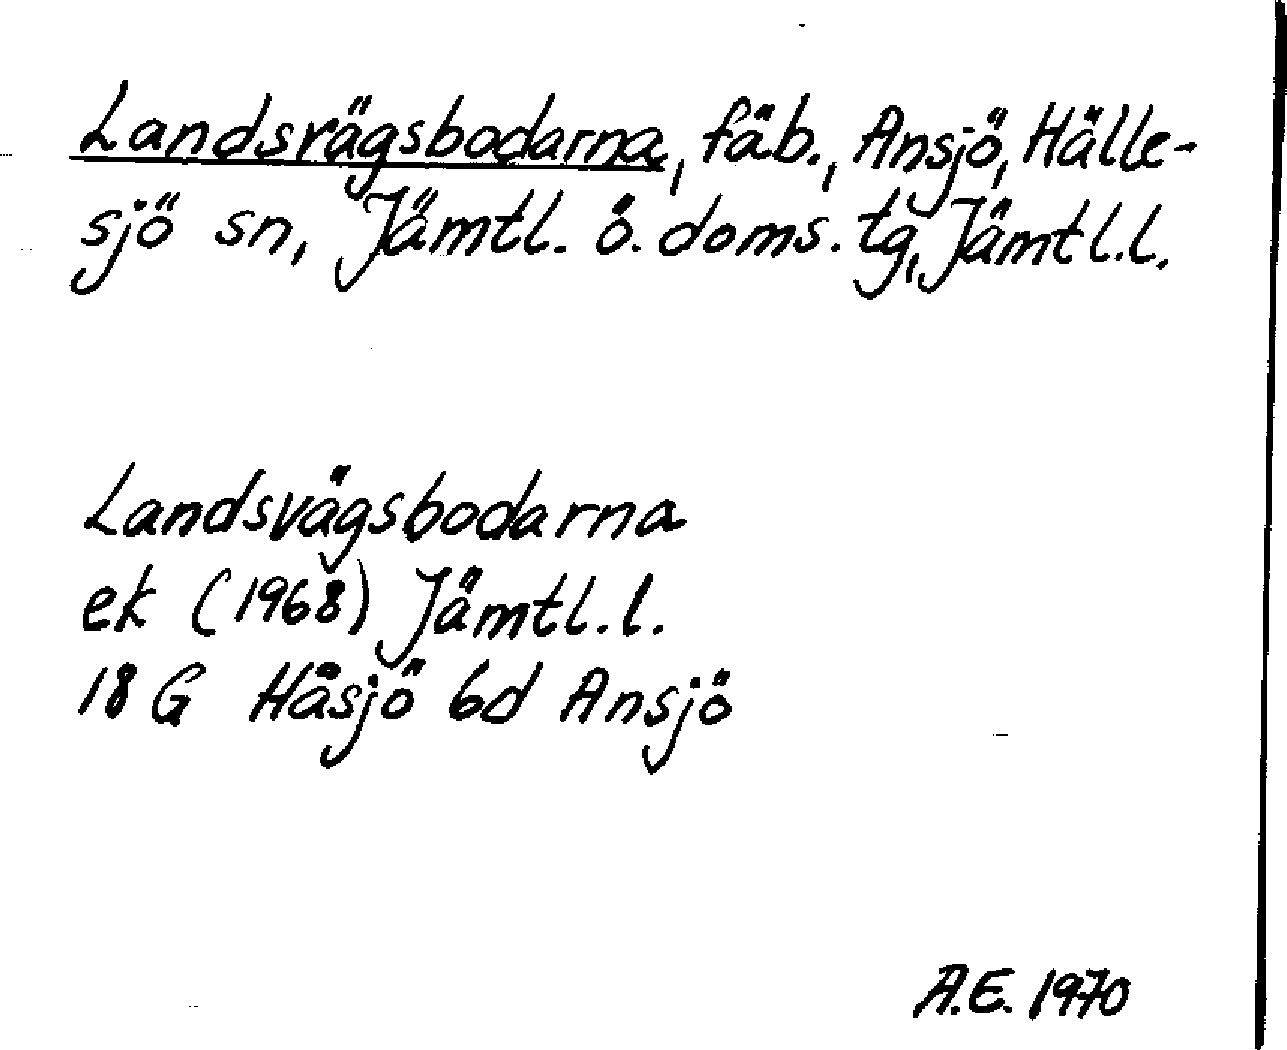 Landsvägsbodarna, fäb., Ansjö, Hälle-
sjö sn, Jämtl. ö. doms. tg, Jämtl.l.
Landsvägsbodarna
ek (1968) Jämtl.l.
18 G Håsjö 6d Ansjö
A.E. 1970